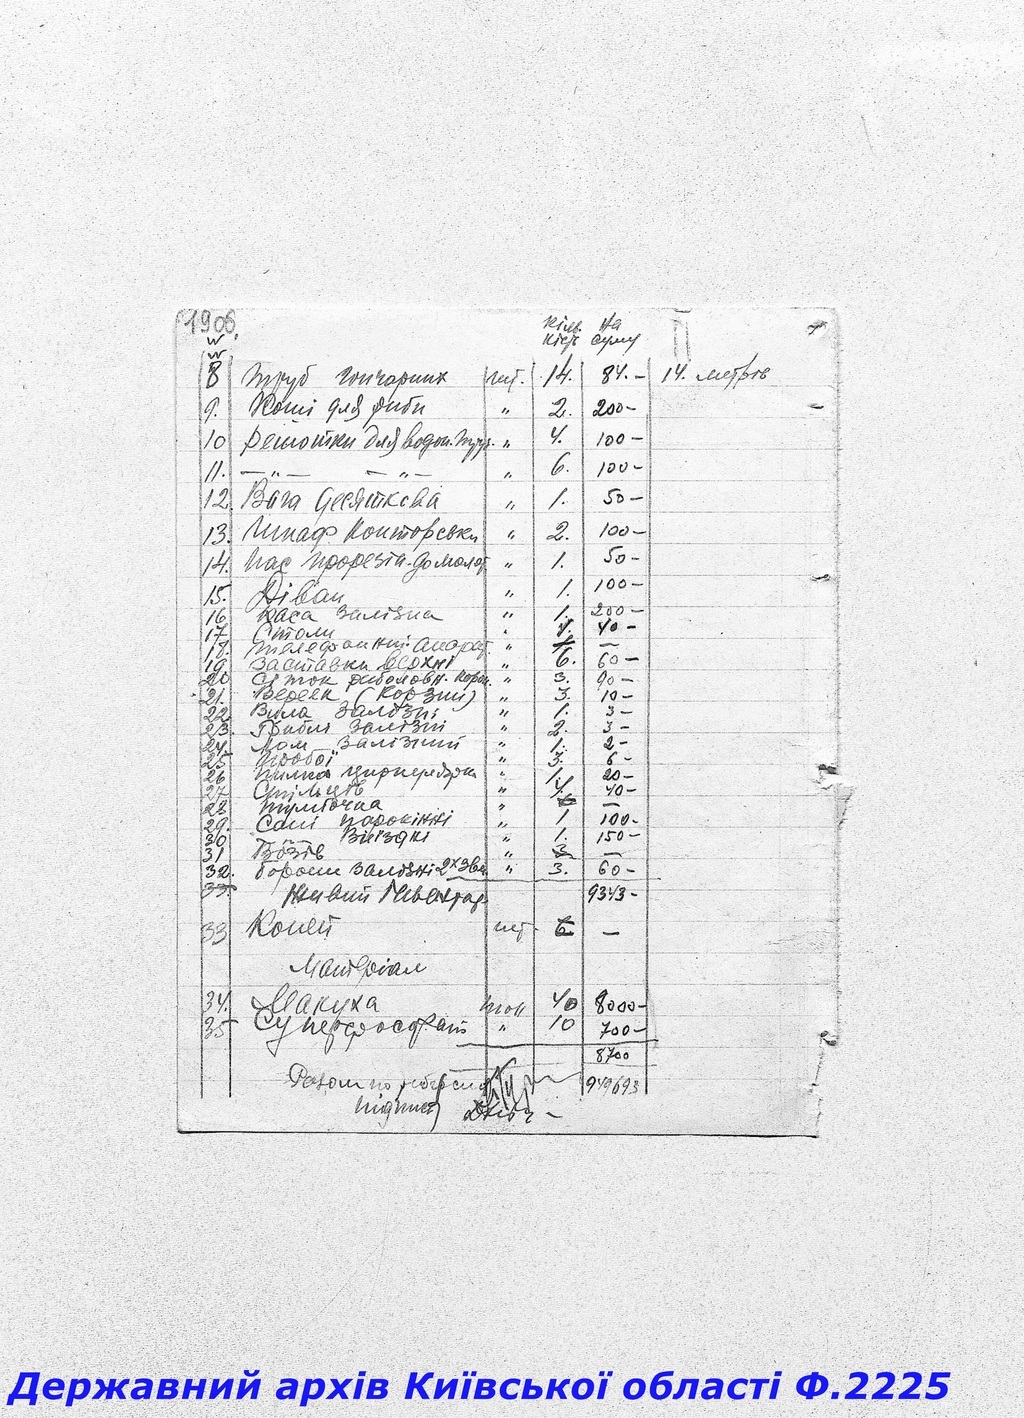 190
Кіль- На
кість суму
8 Труб гончарних шт. 14. 84.- 14. метрів
9. Коші для риби " 2. 200-
10 Решотки для водон. труб. " 4. 100-
11. —"— —"— " 6. 100-
12. Вага десяткова " 1. 50-
13. Шкаф Конторськи " 2. 100-
14. Пас до молот " 1. 50-
15. Діван " 1. 100-
16 Каса залізна " 1. 200-
17 Столи " 4. 40-
18. Телефонний апарат. " —
19. Заставки верхні " 6. 60-
20 риболовн. " 3. 90-
21. Вереек (Корзин) " 3. 10-
22 Вила Залізні " 1. 3-
23. Граблі Залізні " 2. 3-
24. Лом Залізний " 1. 2-
25 Пробої " 3. 6-
26 Пилка " 1. 20-
27 Стільців " 4. 40-
28 Тумбочка " —
29. Сані парокінні " 1 100-
30 Виїздні " 1. 150-
31 Возів " 3 —
32. Борони залізні 2х3в. " 3. 60-
33. Живий Інвентар 9343-
33 Коней шт. 6 —
Матеріал
34. Макуха тон 40 8000-
35 Суперфосфат " 10 700-
8700
Разом по 949693
підпис
Державний архів Київської області Ф.2225